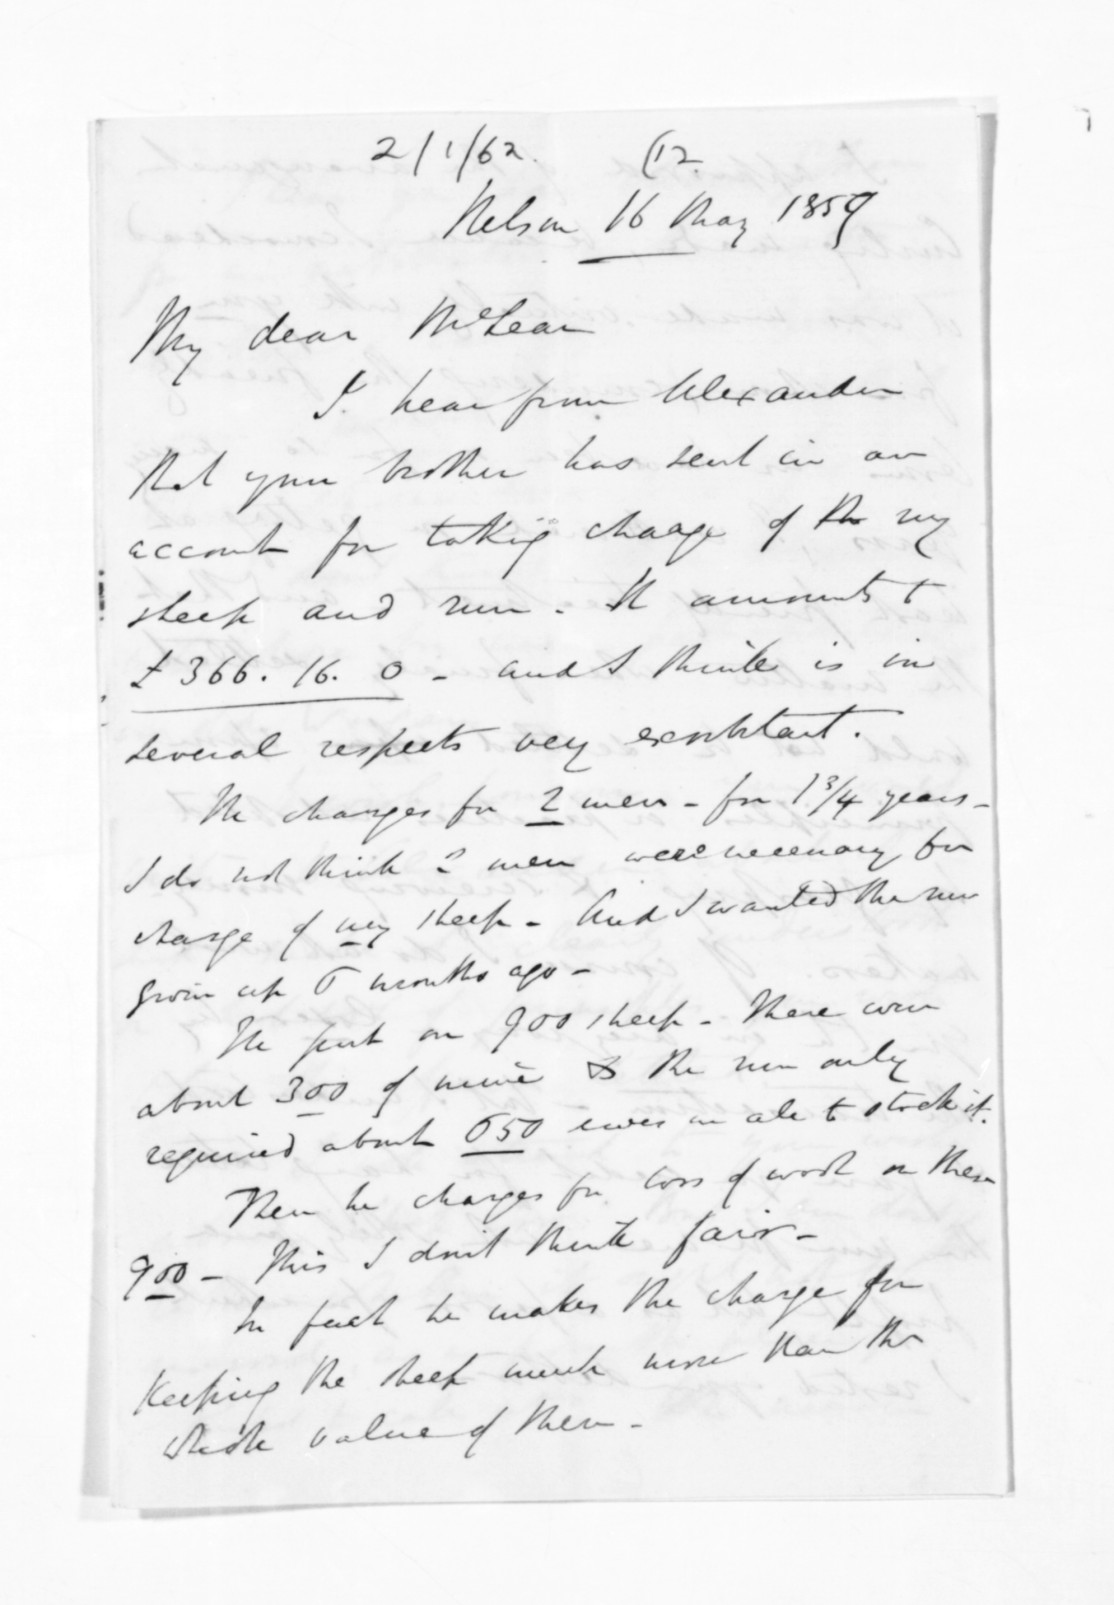 2/1/62. (12.
Nelson 16 May 1859
My dear McLean
I hear from Alexander
that your brother has sent in an
account for taking charge of the my
sheep and run. It amounts to
£366.16.0 - and I think is in
several respects very exorbitant.
The charges for 2 men - for 1 3/4 years -
I do not think 2 men were necessary for
charge of my sheep - And I wanted the run
given up 6 months ago -
The
on 900 sheep - There were
about 300 of mine & the run only
required about 650 ewes in all to stock it.
Then he charges for loss of wool on these
900 - This I don't think fair -
In fact he makes the charge for
keeping the sheep much more than the
whole value of them -